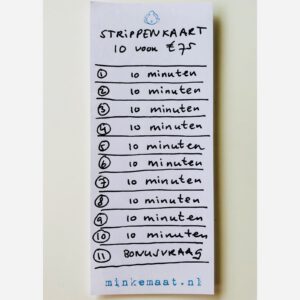 STRIPPENKAART
10 voor €75
1 10 minuten
2 10 minuten
3 10 minuten
4 10 minuten
5 10 minuten
6 10 minuten
7 10 minuten
8 10 minuten
9 10 minuten
10 10 minuten
11 BONUSVRAAG
minkemaat.nl